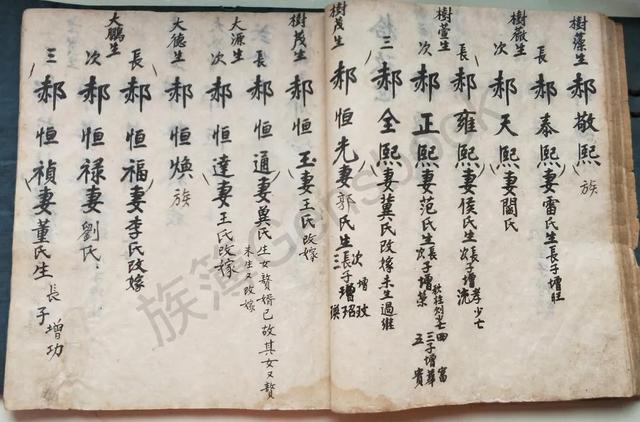 樹藻生 郝敬熙 族
長 郝泰熙妻雷氏生長子增旺
樹薇生 次 郝天熙妻閻氏
樹萱生 長 郝雍熙妻侯氏生長子增孝少亡 次子增洗
次 郝正熙妻范氏生長子增榮 次子 三子增華 四 富 五 貴
三 郝全熙妻冀氏改嫁未生過繼
樹茂生 郝恒光妻郭氏生長子增玟 次 增玿 三 瑛
樹茂生 郝恒玉妻王氏改嫁
大源生 長 郝恒通妻奠氏生女贅婿已故其女又贅
次 郝恒達妻王氏改嫁 未生又改嫁
大德生 郝恒煥 族
大鵬生 長 郝恒福妻李氏改嫁
次 郝恒禄妻劉氏
三 郝恒禎妻董氏生長子增功
族簿Gensubook